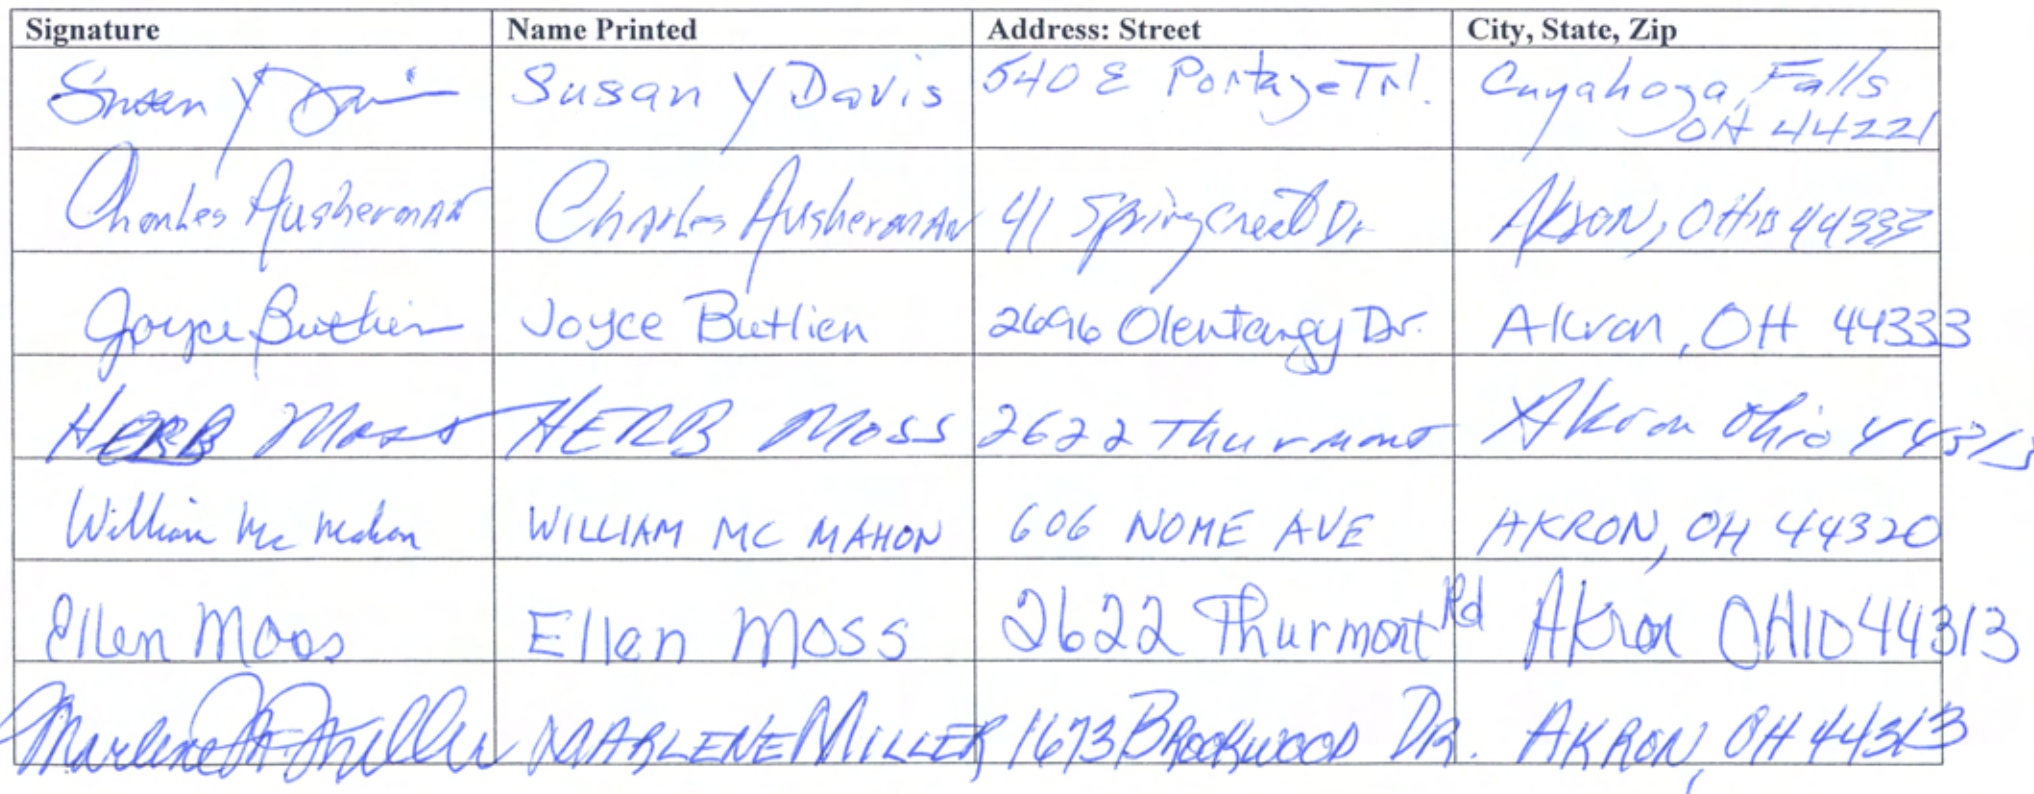 Signature Name Printed Address: Street City, State, Zip
Susan Y Davis Susan Y Davis 540 E Portage Trl. Cuyahoga Falls
OH 44221
Charles Ausherman Charles Ausherman 41 Springcrest Dr Akron, Ohio 44333
Joyce Butlien Joyce Butlien 2696 Olentangy Dr. Akron, OH 44333
HERB Moss HERB MOSS 2622 Thurmont Akron Ohio 44313
William Mc Mahon WILLIAM MC MAHON 606 NOME AVE AKRON, OH 44320
Ellen Moss Ellen Moss 2622 Thurmont Rd Akron OHIO 44313
Marlene A. Miller MARLENE MILLER 1673 BROOKWOOD DR. AKRON, OH 44313